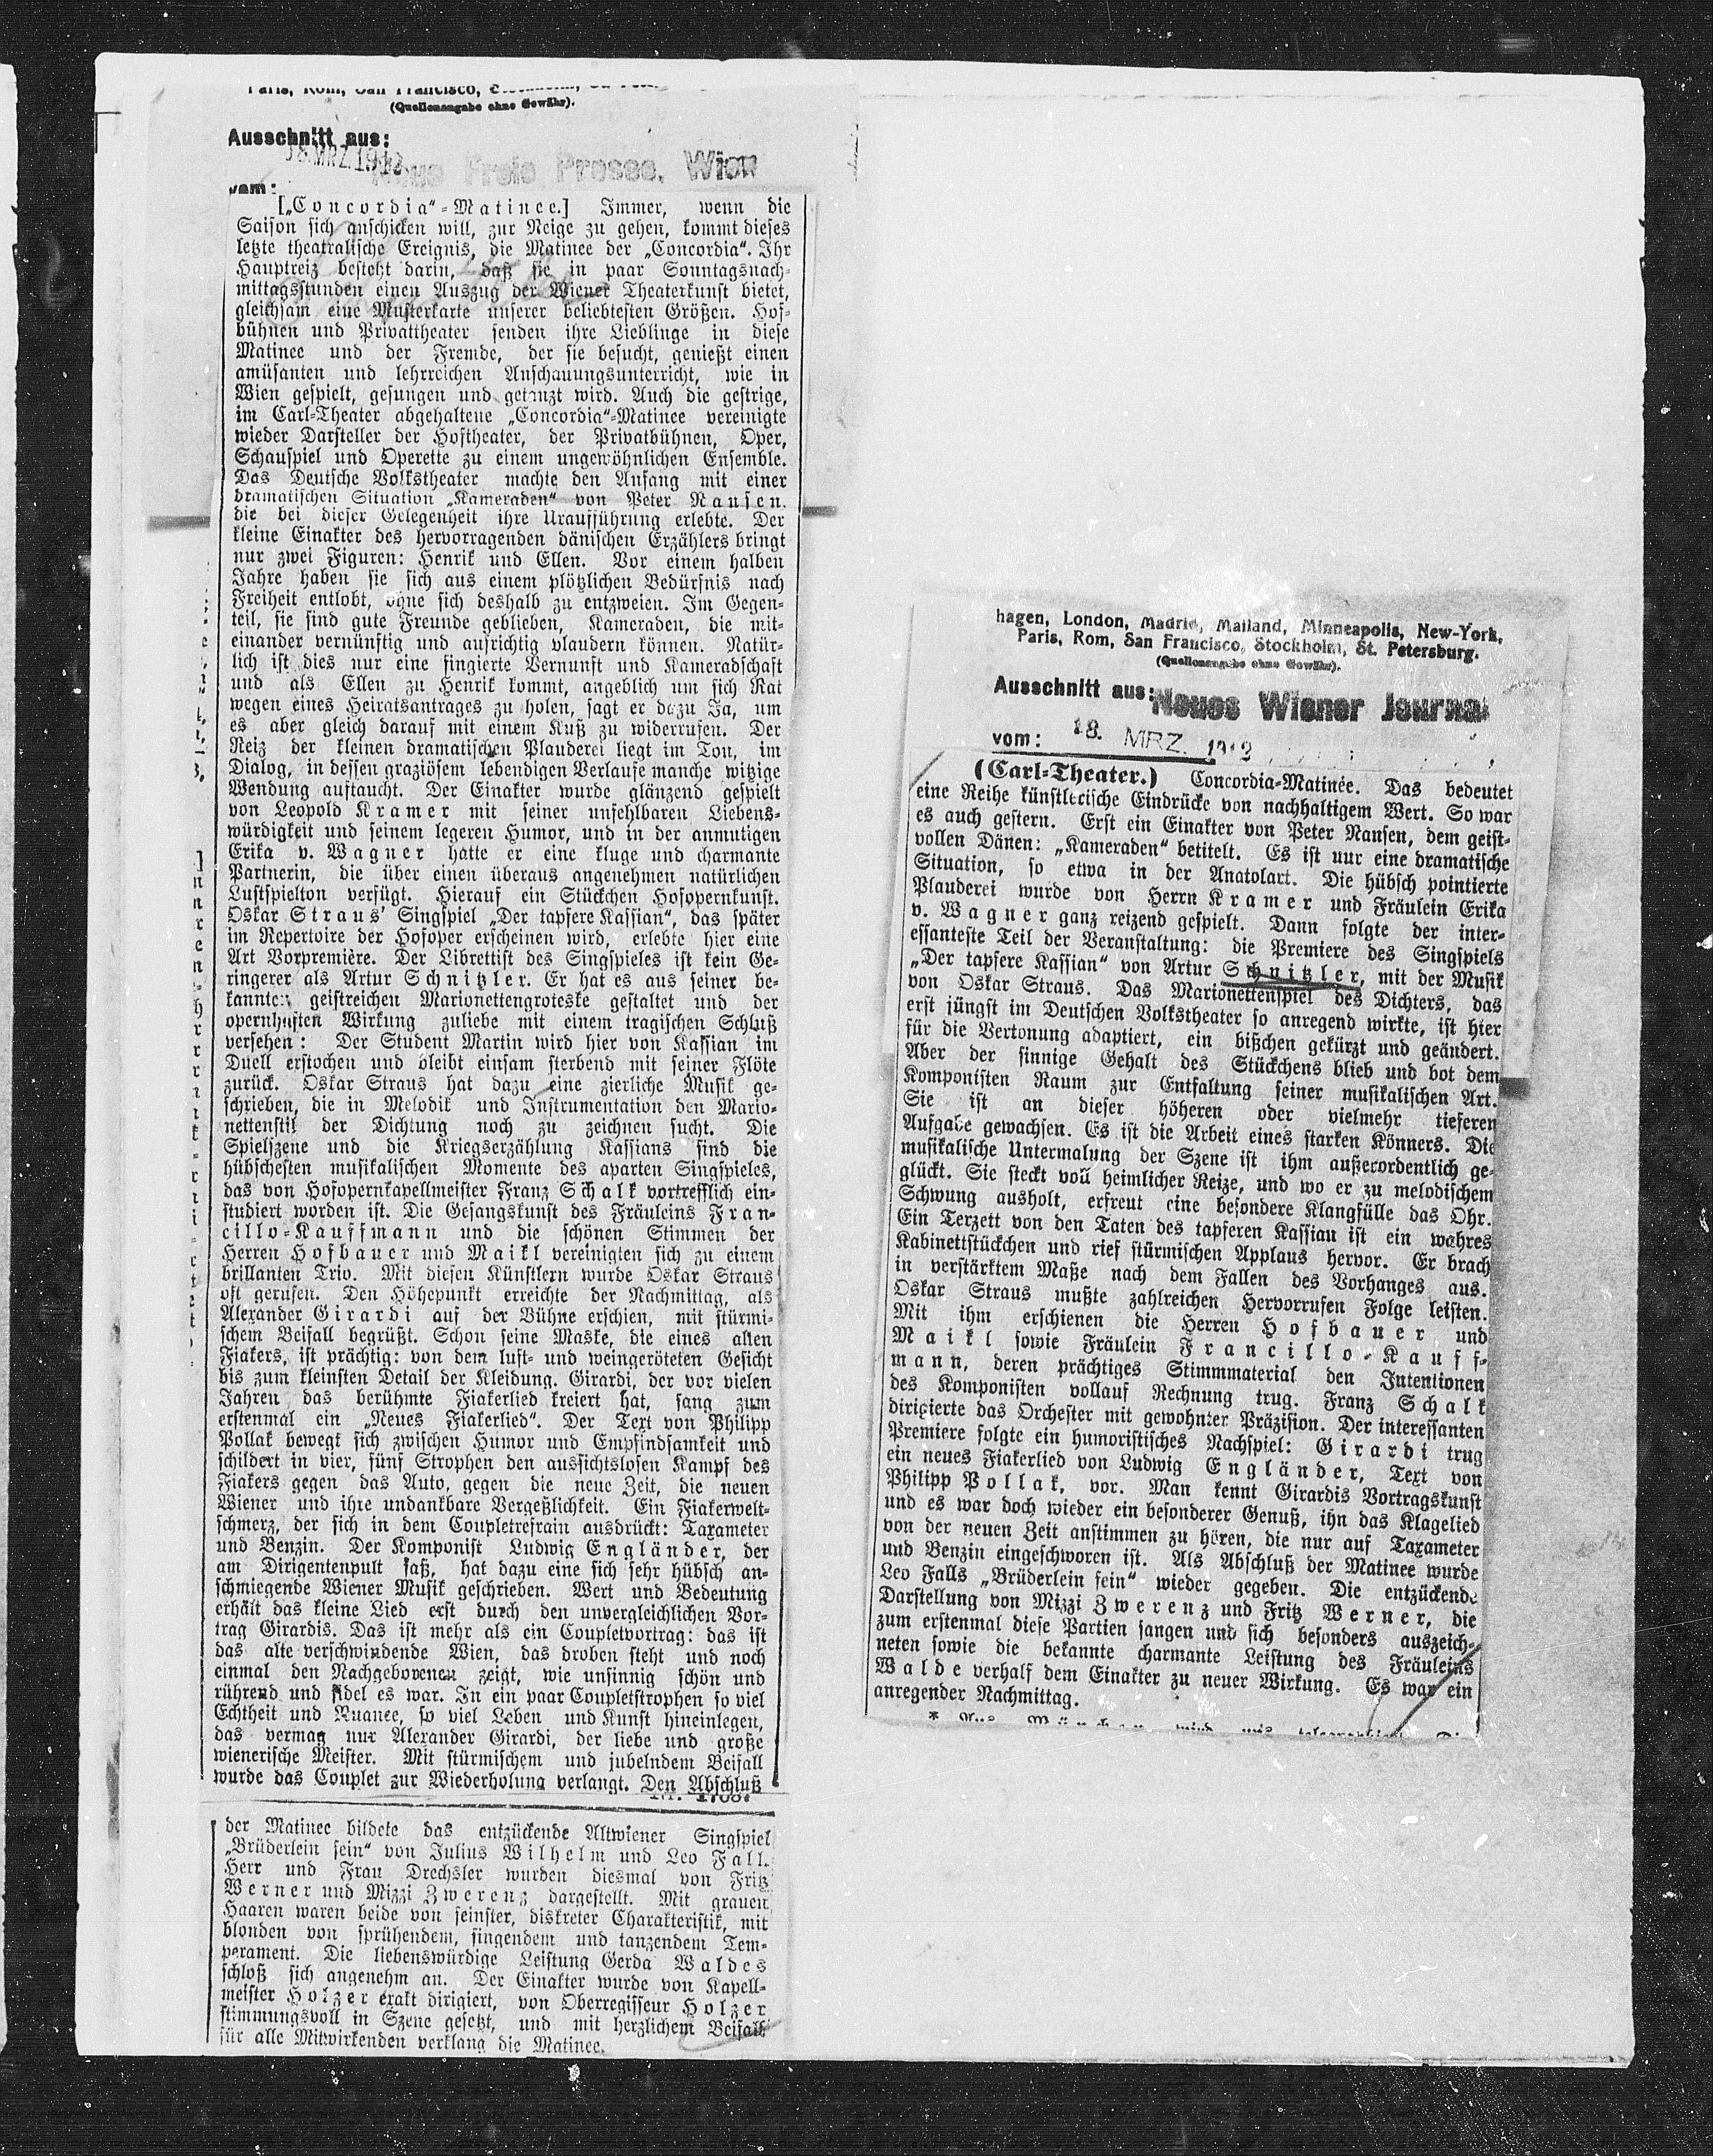 Paris, Rom, San Francisco,
(Quellenangabe ohne Gewähr).
Ausschnitt aus:
18. MRZ. 1912
Neue Freie Presse, Wien
vom:
[„Concordia“-Matinee.] Immer, wenn die
Saison sich anschicken will, zur Neige zu gehen, kommt dieses
letzte theatralische Ereignis, die Matinee der „Concordia“. Ihr
Hauptreiz besteht darin, daß sie in paar Sonntagsnach-
mittagsstunden einen Auszug der Wiener Theaterkunst bietet,
gleichsam eine Musterkarte unserer beliebtesten Größen. Hof-
bühnen und Privattheater senden ihre Lieblinge in diese
Matinee und der Fremde, der sie besucht, genießt einen
amüsanten und lehrreichen Anschauungsunterricht, wie in
Wien gespielt, gesungen und getanzt wird. Auch die gestrige,
im Carl-Theater abgehaltene „Concordia“-Matinee vereinigte
wieder Darsteller der Hoftheater, der Privatbühnen, Oper,
Schauspiel und Operette zu einem ungewöhnlichen Ensemble.
Das Deutsche Volkstheater machte den Anfang mit einer
dramatischen Situation „Kameraden“ von Peter Nansen,
die bei dieser Gelegenheit ihre Uraufführung erlebte. Der
kleine Einakter des hervorragenden dänischen Erzählers bringt
nur zwei Figuren: Henrik und Ellen. Vor einem halben
Jahre haben sie sich aus einem plötzlichen Bedürfnis nach
Freiheit entlobt, ohne sich deshalb zu entzweien. Im Gegen-
teil, sie sind gute Freunde geblieben, Kameraden, die mit-
einander vernünftig und aufrichtig plaudern können. Natür-
lich ist dies nur eine fingierte Vernunft und Kameradschaft
und als Ellen zu Henrik kommt, angeblich um sich Rat
wegen eines Heiratsantrages zu holen, sagt er dazu Ja, um
es aber gleich darauf mit einem Kuß zu widerrufen. Der
Reiz der kleinen dramatischen Plauderei liegt im Ton, im
Dialog, in dessen graziösem lebendigen Verlaufe manche witzige
Wendung auftaucht. Der Einakter wurde glänzend gespielt
von Leopold Kramer mit seiner unfehlbaren Liebens-
würdigkeit und seinem legeren Humor, und in der anmutigen
Erika v. Wagner hatte er eine kluge und charmante
Partnerin, die über einen überaus angenehmen natürlichen
Lustspielton verfügt. Hierauf ein Stückchen Hofopernkunst.
Oskar Straus' Singspiel „Der tapfere Kassian“, das später
im Repertoire der Hofoper erscheinen wird, erlebte hier eine
Art Vorpremière. Der Librettist des Singspieles ist kein Ge-
ringerer als Artur Schnitzler. Er hat es aus seiner be-
kannten geistreichen Marionettengroteske gestaltet und der
opernhaften Wirkung zuliebe mit einem tragischen Schluß
versehen: Der Student Martin wird hier von Kassian im
Duell erstochen und bleibt einsam sterbend mit seiner Flöte
zurück. Oskar Straus hat dazu eine zierliche Musik ge-
schrieben, die in Melodik und Instrumentation den Mario-
nettenstil der Dichtung noch zu zeichnen sucht. Die
Spielszene und die Kriegserzählung Kassians sind die
hübschesten musikalischen Momente des aparten Singspieles,
das von Hofopernkapellmeister Franz Schalk vortrefflich ein-
studiert worden ist. Die Gesangskunst des Fräuleins Fran-
cillo-Kauffmann und die schönen Stimmen der
Herren Hofbauer und Maikl vereinigten sich zu einem
brillanten Trio. Mit diesen Künstlern wurde Oskar Straus
oft gerufen. Den Höhepunkt erreichte der Nachmittag, als
Alexander Girardi auf der Bühne erschien, mit stürmi-
schem Beifall begrüßt. Schon seine Maske, die eines alten
Fiakers, ist prächtig: von dem luft- und weingeröteten Gesicht
bis zum kleinsten Detail der Kleidung. Girardi, der vor vielen
Jahren das berühmte Fiakerlied kreiert hat, sang zum
erstenmal ein „Neues Fiakerlied“. Der Text von Philipp
Pollak bewegt sich zwischen Humor und Empfindsamkeit und
schildert in vier, fünf Strophen den aussichtslosen Kampf des
Fiakers gegen das Auto, gegen die neue Zeit, die neuen
Wiener und ihre undankbare Vergeßlichkeit. Ein Fiakerwelt-
schmerz, der sich in dem Coupletrefrain ausdrückt: Taxameter
und Benzin. Der Komponist Ludwig Engländer, der
am Dirigentenpult saß, hat dazu eine sich sehr hübsch an-
schmiegende Wiener Musik geschrieben. Wert und Bedeutung
erhält das kleine Lied erst durch den unvergleichlichen Vor-
trag Girardis. Das ist mehr als ein Coupletvortrag: das ist
das alte verschwindende Wien, das droben steht und noch
einmal den Nachgeborenen zeigt, wie unsinnig schön und
rührend und fidel es war. In ein paar Coupletstrophen so viel
Echtheit und Nuance, so viel Leben und Kunst hineinlegen,
das vermag nur Alexander Girardi, der liebe und große
wienerische Meister. Mit stürmischem und jubelndem Beifall
wurde das Couplet zur Wiederholung verlangt. Den Abschluß
der Matinee bildete das entzückende Altwiener Singspiel
„Brüderlein fein“ von Julius Wilhelm und Leo Fall.
Herr und Frau Drechsler wurden diesmal von Fritz
Werner und Mizzi Zwerenz dargestellt. Mit grauen
Haaren waren beide von feinster, diskreter Charakteristik, mit
blonden von sprühendem, singendem und tanzendem Tem-
perament. Die liebenswürdige Leistung Gerda Waldes
schloß sich angenehm an. Der Einakter wurde von Kapell-
meister Holzer exakt dirigiert, von Oberregisseur Holzer
stimmungsvoll in Szene gesetzt, und mit herzlichem Beifall
für alle Mitwirkenden verklang die Matinee.
hagen, London, Madrid, Mailand, Minneapolis, New-York,
Paris, Rom, San Francisco, Stockholm, St. Petersburg.
(Quellenangabe ohne Gewähr).
Ausschnitt aus: Neues Wiener Journal
vom: 18. MRZ. 1912
(Carl-Theater.) Concordia-Matinée. Das bedeutet
eine Reihe künstlerische Eindrücke von nachhaltigem Wert. So war
es auch gestern. Erst ein Einakter von Peter Nansen, dem geist-
vollen Dänen: „Kameraden“ betitelt. Es ist nur eine dramatische
Situation, so etwa in der Anatolart. Die hübsch pointierte
Plauderei wurde von Herrn Kramer und Fräulein Erika
v. Wagner ganz reizend gespielt. Dann folgte der inter-
essanteste Teil der Veranstaltung: die Premiere des Singspiels
„Der tapfere Kassian“ von Artur Schnitzler, mit der Musik
von Oskar Straus. Das Marionettenspiel des Dichters, das
erst jüngst im Deutschen Volkstheater so anregend wirkte, ist hier
für die Vertonung adaptiert, ein bißchen gekürzt und geändert.
Aber der sinnige Gehalt des Stückchens blieb und bot dem
Komponisten Raum zur Entfaltung seiner musikalischen Art.
Sie ist an dieser höheren oder vielmehr tieferen
Aufgabe gewachsen. Es ist die Arbeit eines starken Könners. Die
musikalische Untermalung der Szene ist ihm außerordentlich ge-
glückt. Sie steckt voll heimlicher Reize, und wo er zu melodischem
Schwung ausholt, erfreut eine besondere Klangfülle das Ohr.
Ein Terzett von den Taten des tapferen Kassian ist ein wahres
Kabinettstückchen und rief stürmischen Applaus hervor. Er brach
in verstärktem Maße nach dem Fallen des Vorhanges aus.
Oskar Straus mußte zahlreichen Hervorrufen Folge leisten.
Mit ihm erschienen die Herren Hofbauer und
Maikl sowie Fräulein Francillo-Kauff-
mann, deren prächtiges Stimmmaterial den Intentionen
des Komponisten vollauf Rechnung trug. Franz Schalk
dirigierte das Orchester mit gewohnter Präzision. Der interessanten
Premiere folgte ein humoristisches Nachspiel: Girardi trug
ein neues Fiakerlied von Ludwig Engländer, Text von
Philipp Pollak, vor. Man kennt Girardis Vortragskunst
und es war doch wieder ein besonderer Genuß, ihn das Klagelied
von der neuen Zeit anstimmen zu hören, die nur auf Taxameter
und Benzin eingeschworen ist. Als Abschluß der Matinee wurde
Leo Falls „Brüderlein fein“ wieder gegeben. Die entzückende
Darstellung von Mizzi Zwerenz und Fritz Werner, die
zum erstenmal diese Partien sangen und sich besonders auszeich-
neten sowie die bekannte charmante Leistung des Fräuleins
Walde verhalf dem Einakter zu neuer Wirkung. Es war ein
anregender Nachmittag.
* Aus München wird uns telegraphiert